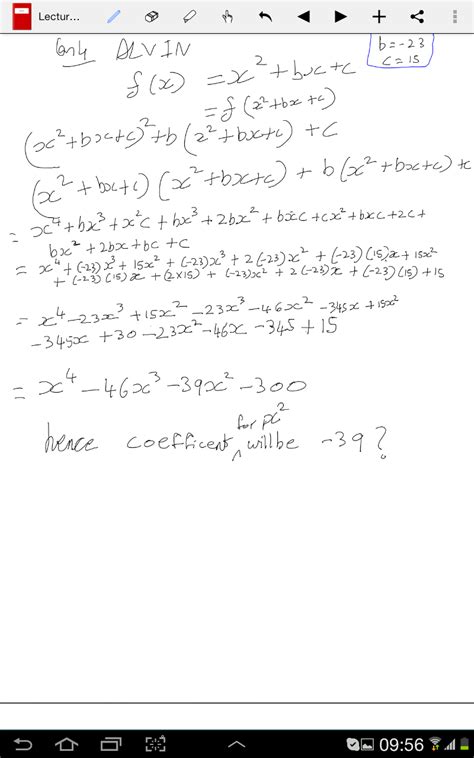 Lectur...
b=-23
c=15
ALVIN
f(x) = x² + bx + c
= f(x² + bx + c)
(x² + bx + c)² + b(x² + bx + c) + c
(x² + bx + c) (x² + bx + c) + b(x² + bx + c) + c
= x⁴ + bx³ + x²c + bx³ + 2bx² + bxc + cx² + bxc + 2c +
bx² + 2bx + bc + c
= x⁴ + (-23)x³ + 15x² + (-23)x³ + 2(-23)x² + (-23)(15)x + 15x²
+ (-23)(15)x + (2×15) + (-23)x² + 2(-23)x + (-23)(15) + 15
= x⁴ - 23x³ + 15x² - 23x³ - 46x² - 345x + 15x²
- 345x + 30 - 23x² - 46x - 345 + 15
= x⁴ - 46x³ - 39x² - 300
for x²
hence coefficent ^ will be -39 ?
09:56